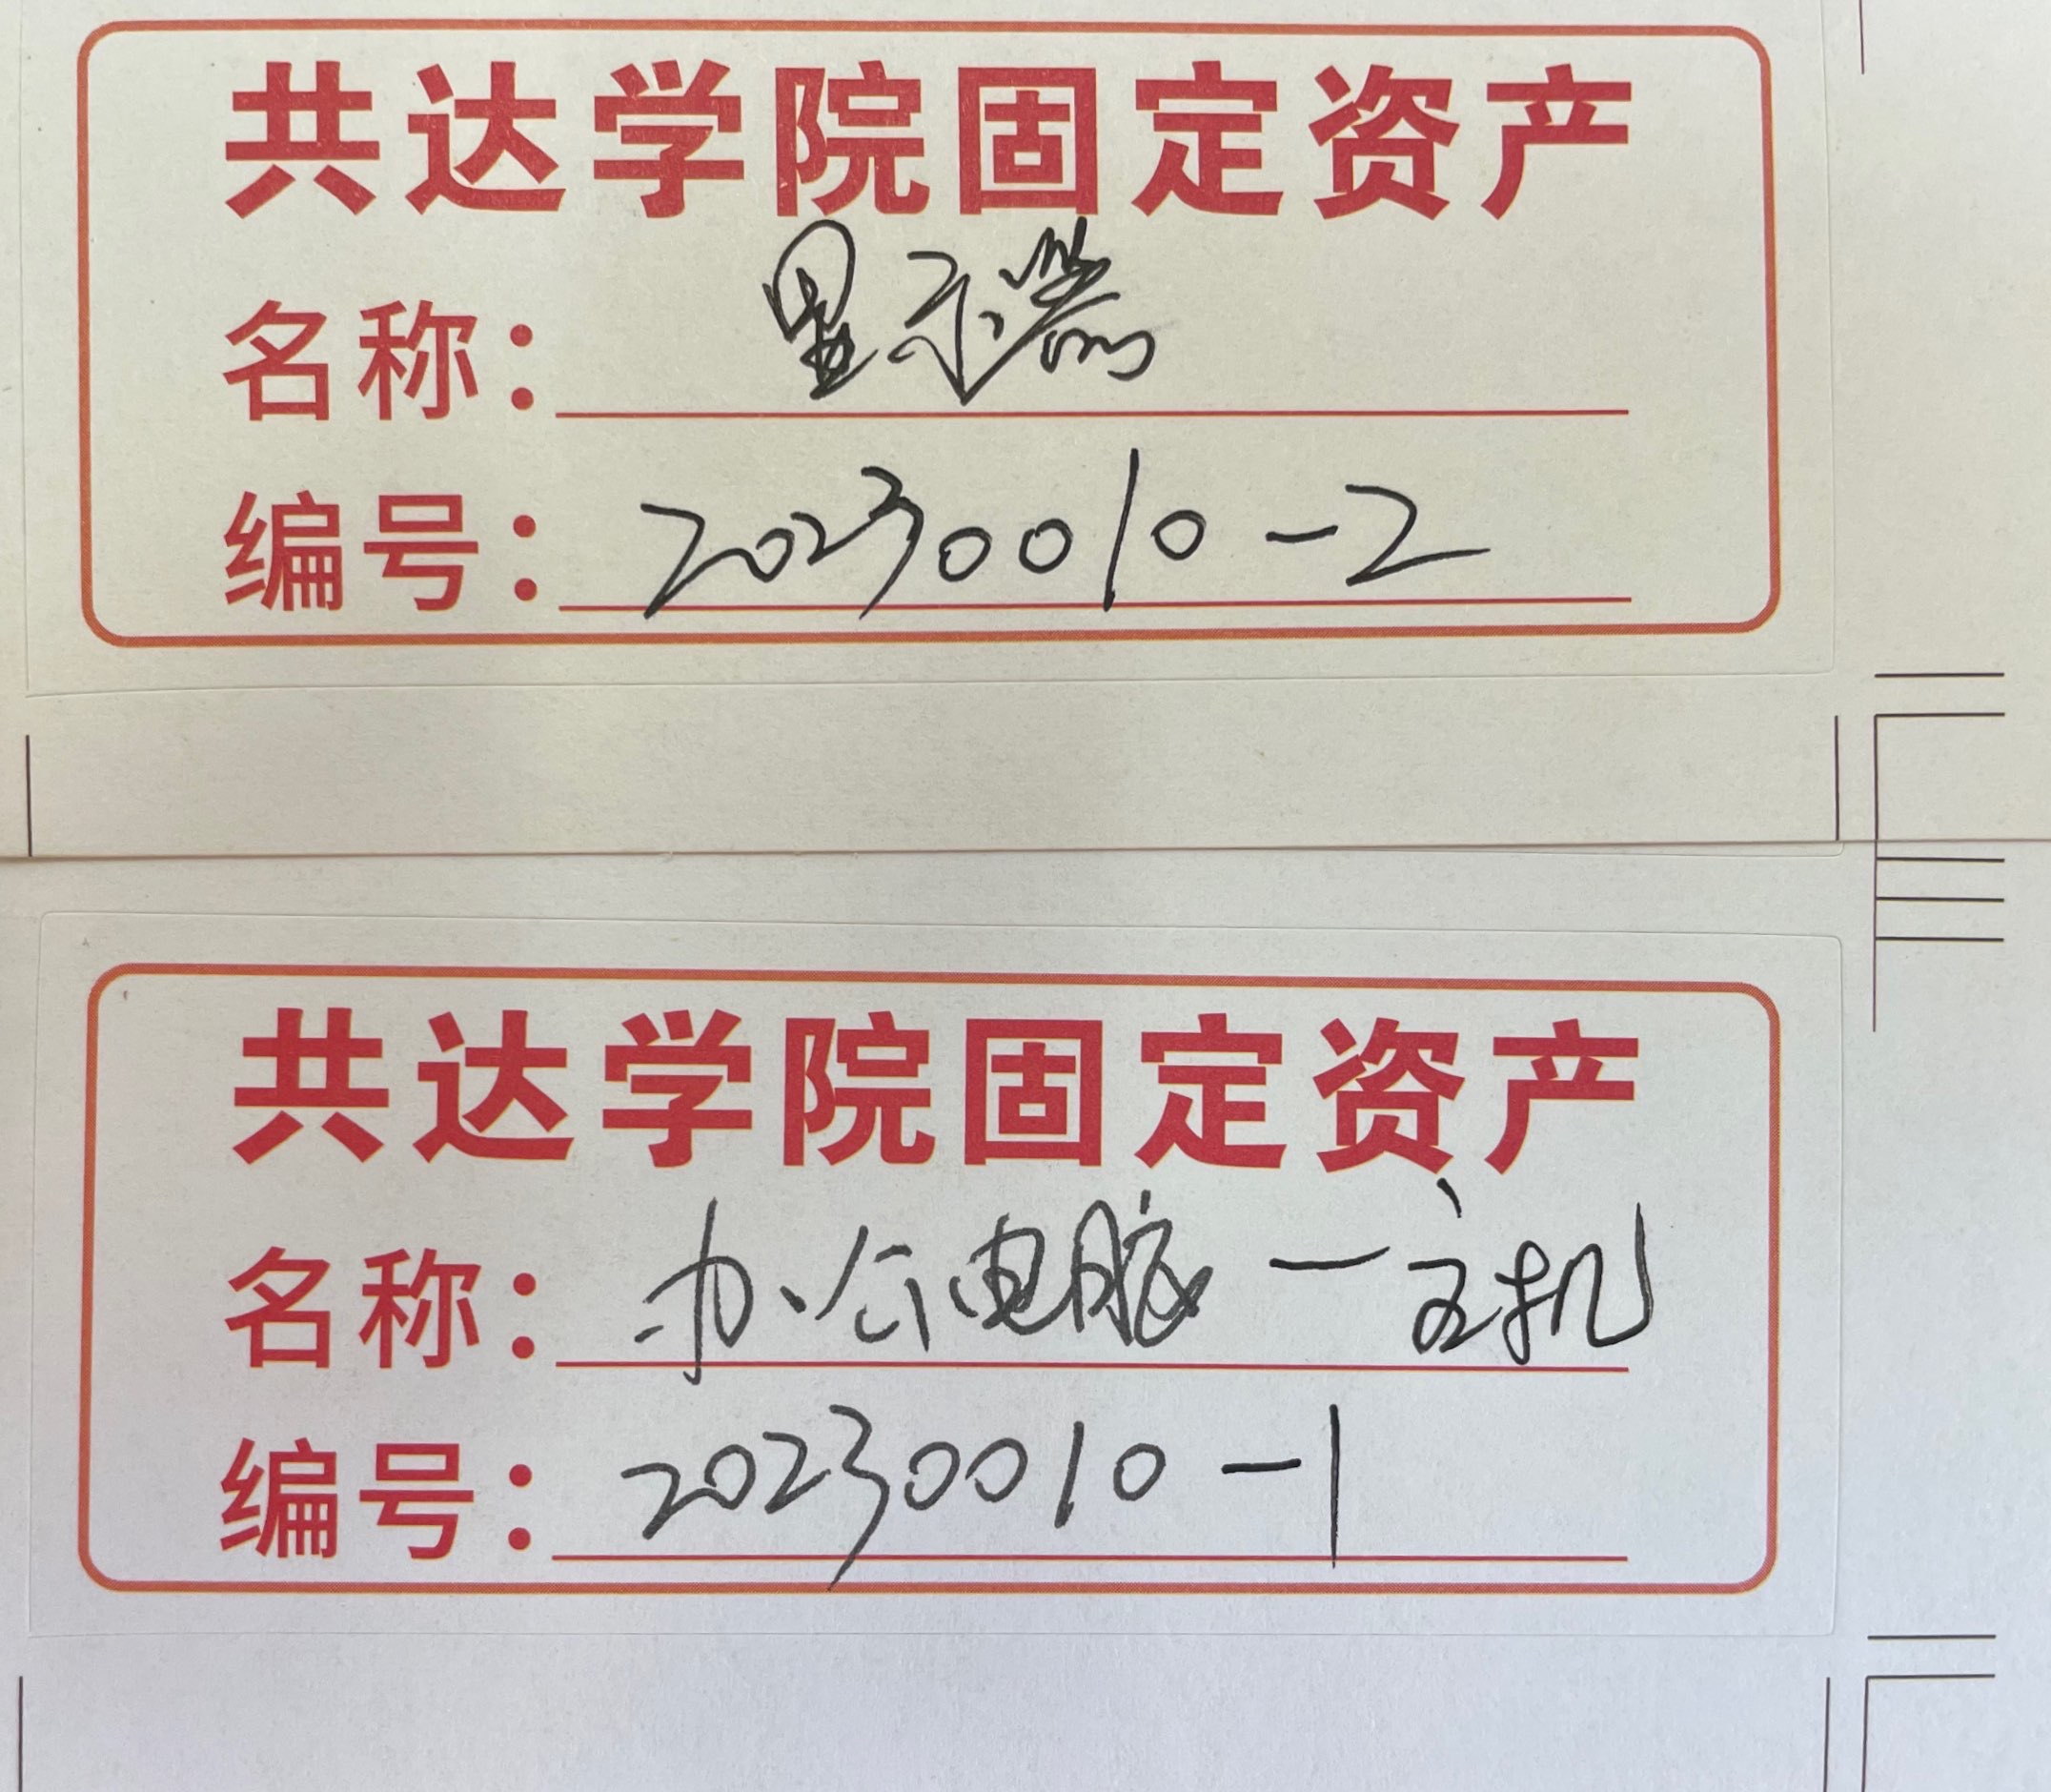 共达学院固定资产
名称：显示器
编号：20230010-2
共达学院固定资产
名称：办公电脑-主机
编号：20230010-1